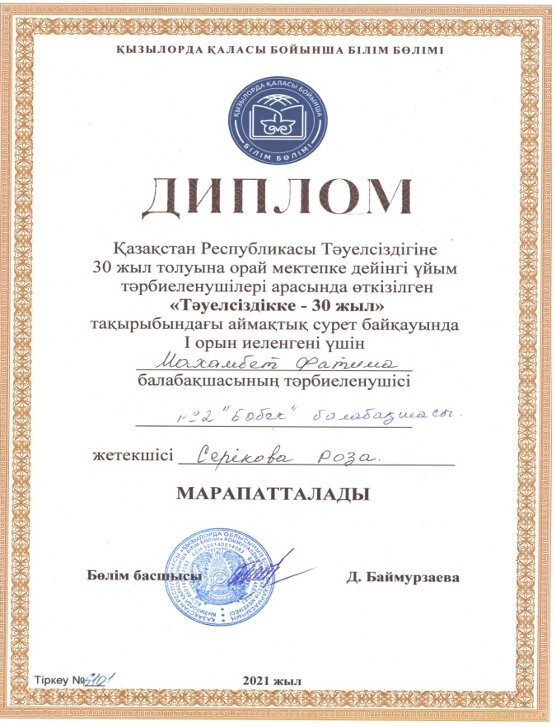 ҚЫЗЫЛОРДА ҚАЛАСЫ БОЙЫНША БІЛІМ БӨЛІМІ
ҚЫЗЫЛОРДА ҚАЛАСЫ БОЙЫНША
БІЛІМ БӨЛІМІ
ДИПЛОМ
Қазақстан Республикасы Тәуелсіздігіне
30 жыл толуына орай мектепке дейінгі ұйым
тәрбиеленушілері арасында өткізілген
«Тәуелсіздікке - 30 жыл»
тақырыбындағы аймақтық сурет байқауында
І орын иеленгені үшін
Махамбет Фатима
балабақшасының тәрбиеленушісі
№2 "Бөбек" балабақшасы.
жетекшісі Серікова Роза.
МАРАПАТТАЛАДЫ
Бөлім басшысы Д. Баймурзаева
Тіркey №
2021 жыл